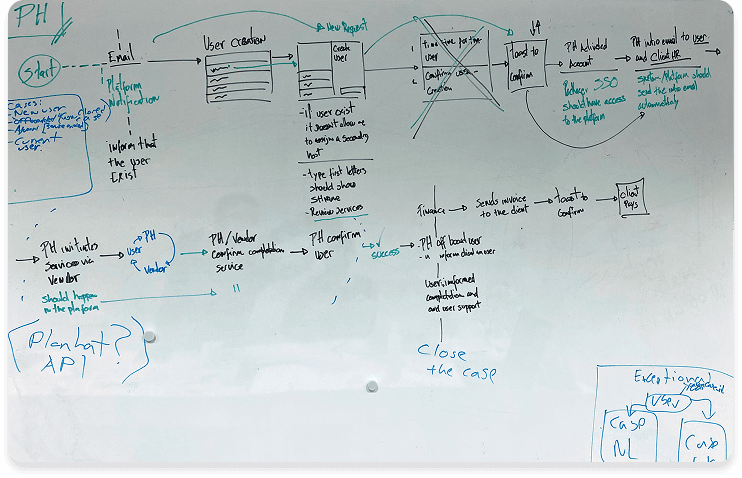 PH
Start
Email
Platform
Notification
inform that
the user
Exist
Cases:
- New user
- Current
user.
User Creation
New Request
Create
user
- If user exist
it doesn't allow me
to assign a secondary
host
- type first letters
should show
- Review services
user
Confirm user
Creation
Toast to
Confirm
PH Activated
Account
SSO
should have access
to the platform
PH intro email to user
and Client HR
System/Platform should
send the intro email
automatically
PH initiates
Services via
Vendor
should happen
in the platform
PH
user
Vendor
PH/Vendor
Confirm completation
service
"
PH confirm:
user
success
Finance
Sends invoice
to the client
Toast to
Confirm
Client
Pays
PH off board user
User informed
completation and
and user support
Close
the case
Planhat?
API
Exceptional
user
Case
NL
Case